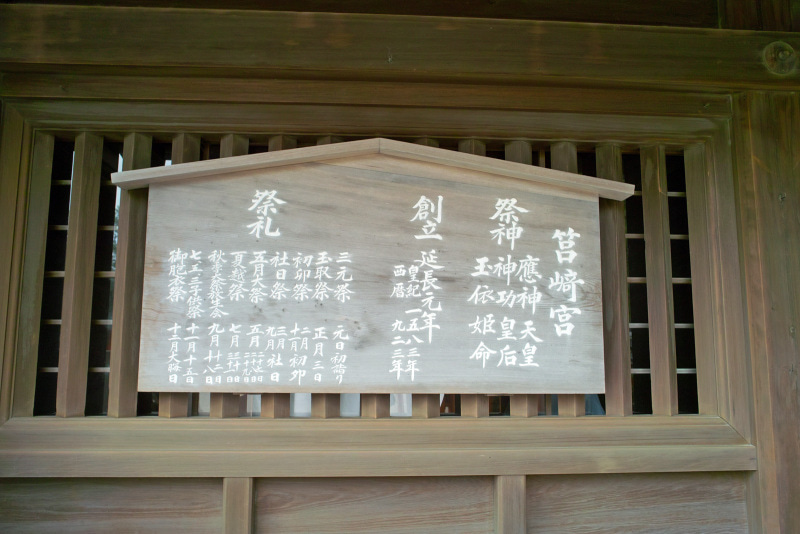 筥崎宮
祭神
應神天皇
神功皇后
玉依姫命
創立 延長元年
皇紀 一五八三年
西暦 九二三年
祭札
三元祭 元日初詣り
玉取祭 正月三日
初卯祭 二月 十一月 初卯
社日祭 三月 九月 社日
五月大祭 五月
夏越祭 七月
秋季大祭放生会 九月十二日 十八日
七五三子供祭 十一月十五日
御胞衣祭 十二月大晦日